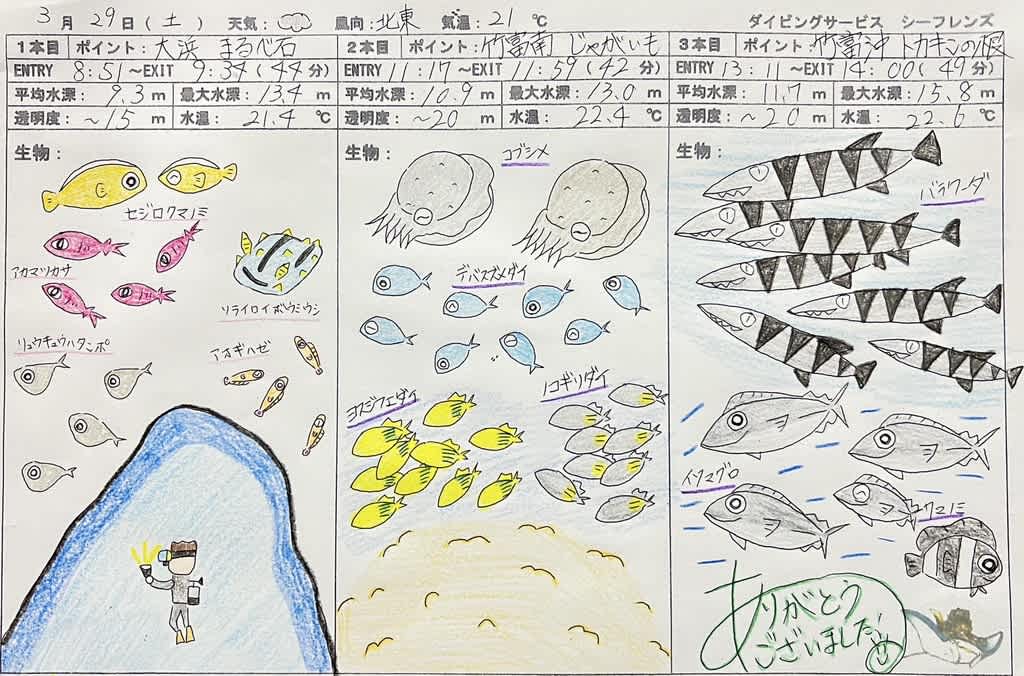 3月29日(土) 天気: 風向:北東 気温:21℃ ダイビングサービス シーフレンズ
1本目 ポイント:大浜 まるべ石
ENTRY 8:51~EXIT 9:34(44分)
平均水深:9.3m 最大水深:13.4m
透明度:~15m 水温:21.4℃
生物:
セジロクマノミ
アカマツカサ
ソライロイボウミウシ
リュウキュウハタンポ
アオギハゼ
2本目 ポイント:竹富南 じゃがいも
ENTRY 11:17~EXIT 11:59(42分)
平均水深:10.9m 最大水深:13.0m
透明度:~20m 水温:22.4℃
生物:
コブシメ
デバスズメダイ
ヨスジフエダイ
ノコギリダイ
3本目 ポイント:竹富沖 トカキンの根
ENTRY 13:11~EXIT 14:00(49分)
平均水深:11.7m 最大水深:15.8m
透明度:~20m 水温:22.6℃
生物:
バラクーダ
イソマグロ
クマノミ
ありがとう
ございました